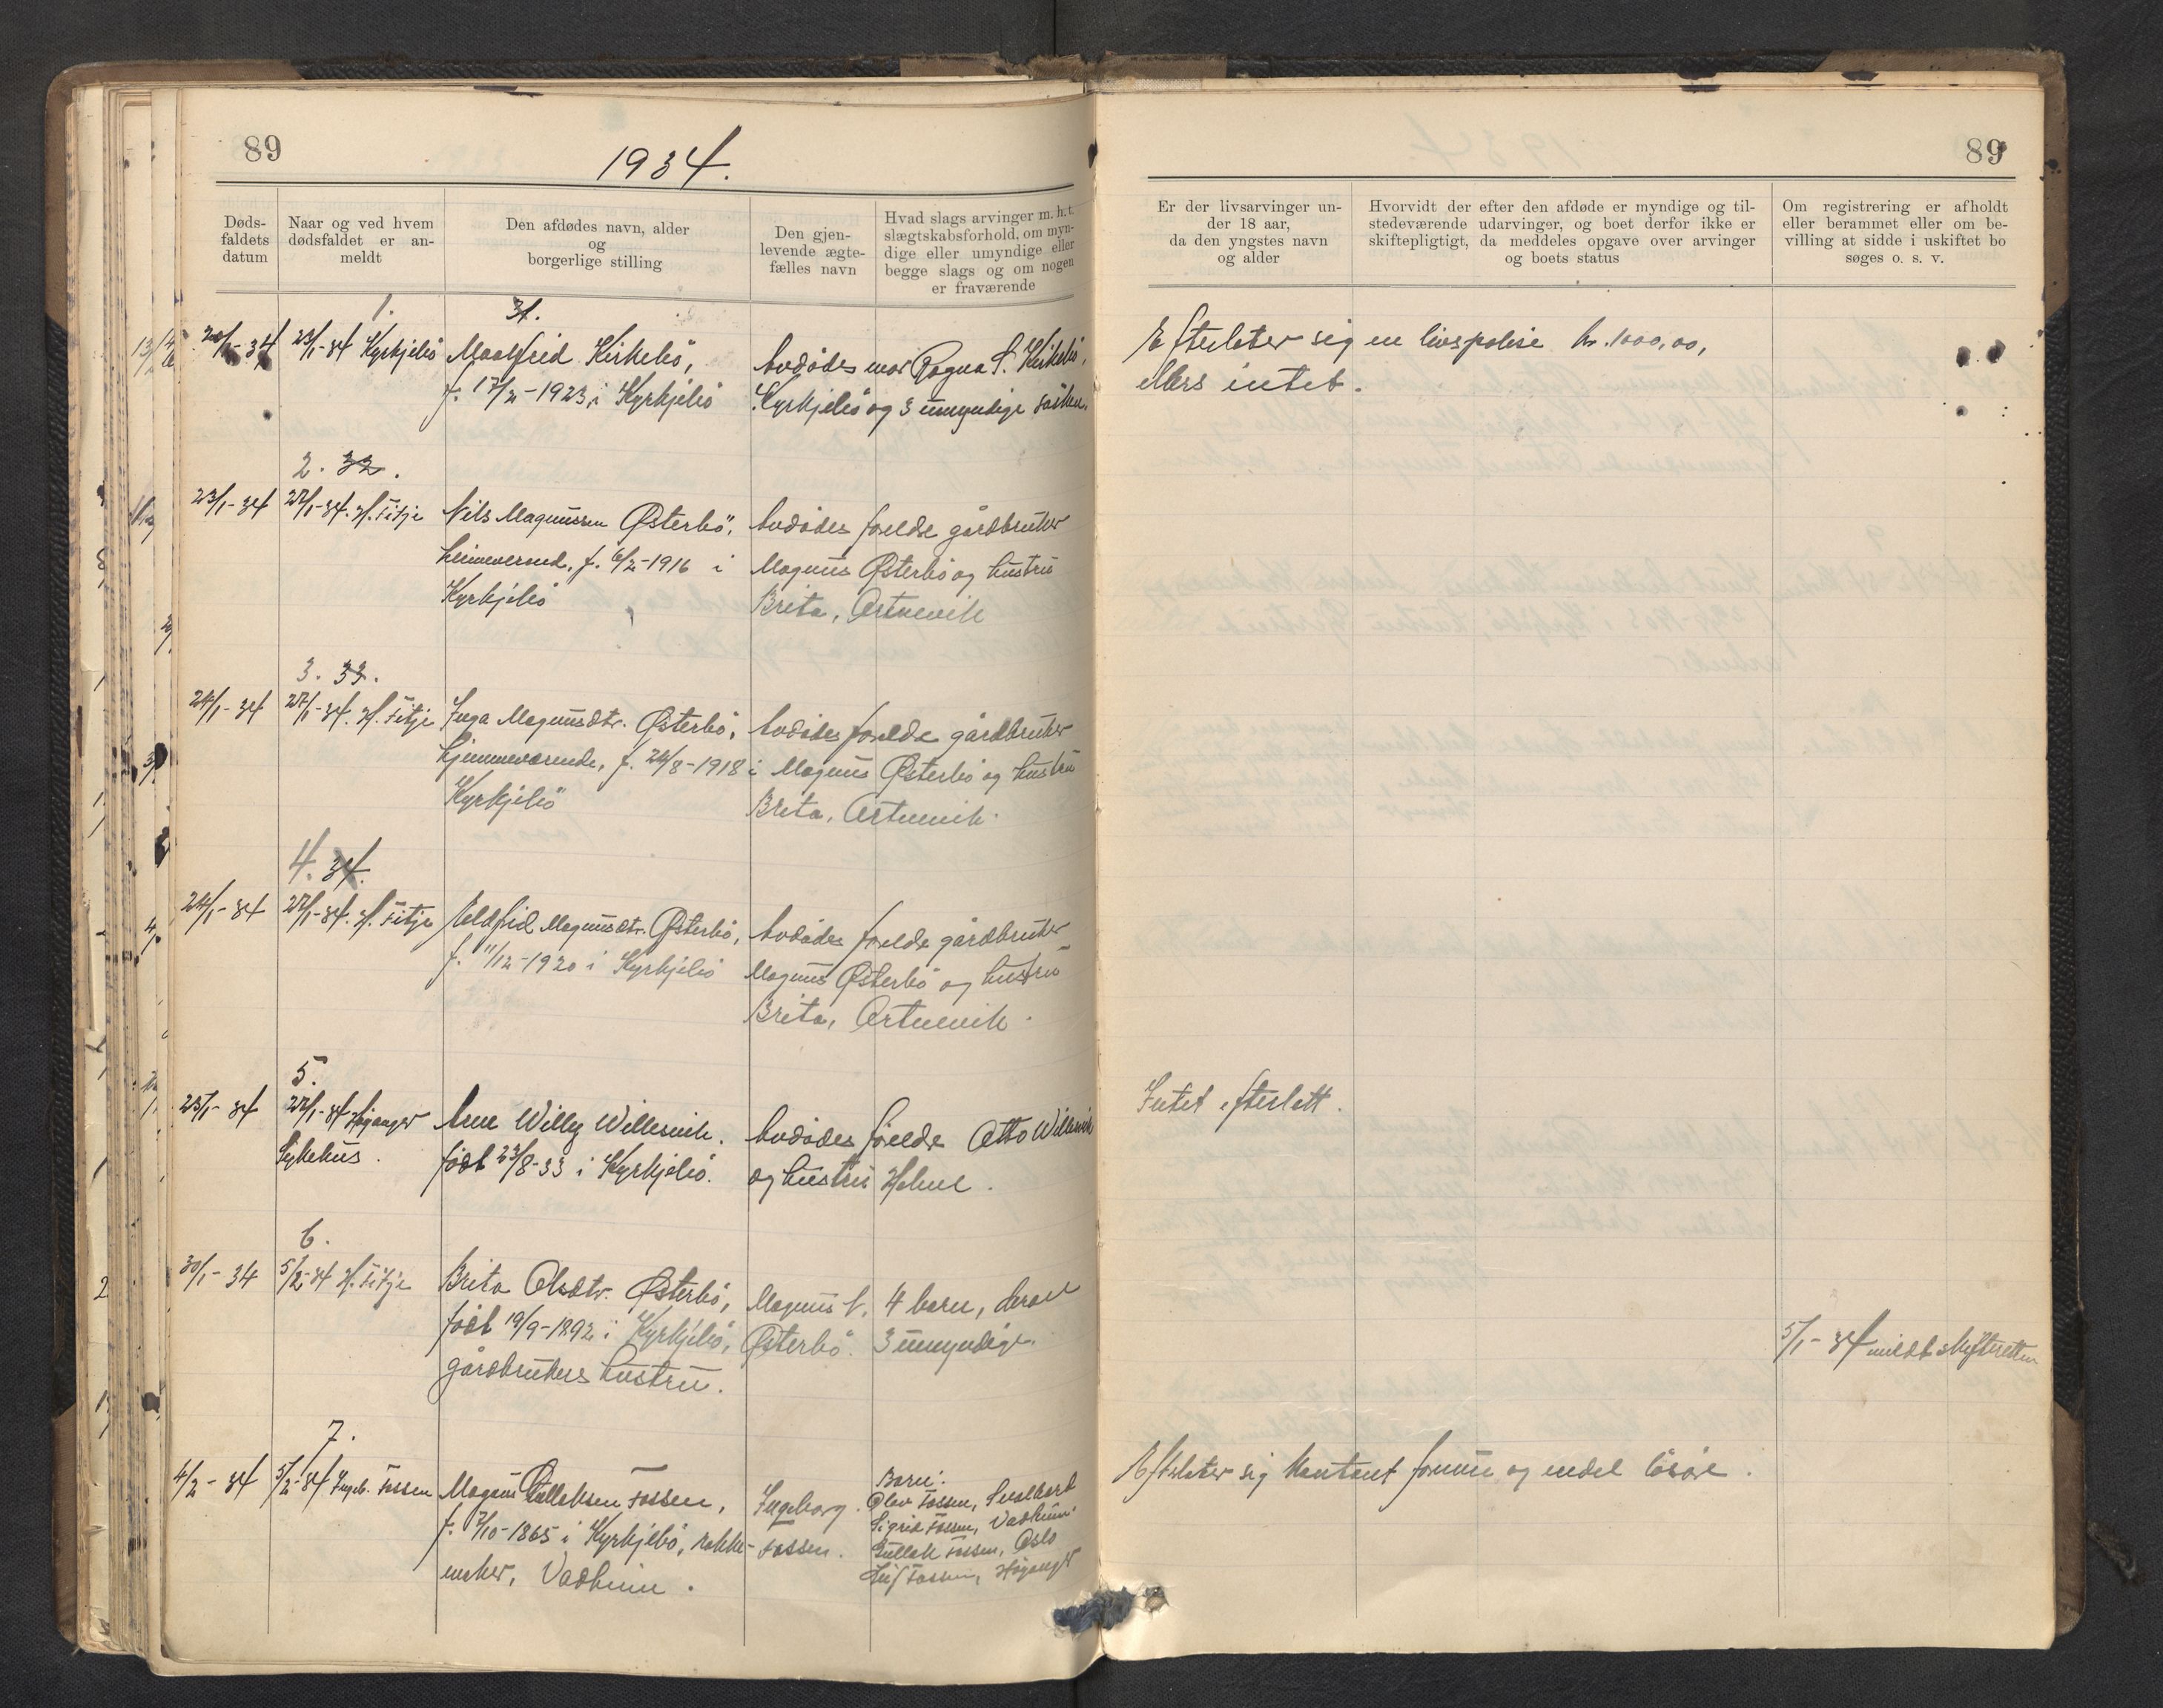 89
1934.
89
Døds-
faldets
datum
Naar og ved hvem
dødsfaldet er an-
meldt
Den afdødes navn, alder
og
borgerlige stilling
Den gjen-
levende ægte-
fælles navn
Hvad slags arvinger m. h. t.
slægtskabsforhold, om myn-
dige eller umyndige eller
begge slags og om nogen
er fraværende
Er der livsarvinger un-
der 18 aar,
da den yngstes navn
og alder
Hvorvidt der efter den afdøde er myndige og til-
stedeværende udarvinger, og boet derfor ikke er
skiftepligtigt, da meddeles opgave over arvinger
og boets status
Om registrering er afholdt
eller berammet eller om be-
villing at sidde i uskiftet bo
søges o. s. v.
1. 31.
20/1-34
23/1-34 Kyrkjebö
Maalfrid Kirkebö,
f. 17/2-1923 i Kyrkjebö
Avdödes mor Ragna S. Kirkebö,
Kyrkjebö og 3 umyndige sösken.
Efterlater sig en livspolise kr. 1000,00,
ellers intet.
2. 32.
23/1-34
27/1-34. H. Fitje
Nils Magnussen Østerbö,
heimeverend, f. 6/2-1916 i
Kyrkjebö
Avdödes forelde gårdbruker
Magnus Østerbö og hustru
Brita, Ortnevik
3. 33.
24/1-34
27/1-34. H. Fitje
Inga Magnusdtr. Østerbö,
hjemmeværende, f. 24/8-1918 i
Kyrkjebö
Avdödes forelde gårdbruker
Magnus Østerbö og hustru
Brita, Ortnevik.
4. 34.
24/1-34
27/1-34. H. Fitje
Magnusdtr. Østerbö,
f. 11/12-1920 i Kyrkjebö
Avdödes forelde gårdbruker
Magnus Østerbö og hustru
Brita, Ortnevik.
5.
25/1-34
27/1-34 Höyanger
Sykehus.
Arne Willy Willesvik.
född 23/8-33 i Kyrkjebö.
Avdödes forelde Otto Willesvik
og hustru
Intet efterlatt.
6.
30/1-34
5/2-34 H. Fitje
Brita Olsdtr. Østerbö,
född 19/9-1892 i Kyrkjebö,
gårdbrukers hustru.
Magnus N.
Østerbö.
4 barn, derav
3 umyndige.
5/1-34 meldt skifteretten
7.
4/2-34
5/2-34 Ingeb. Fossen
Magnus Gulleksen Fossen,
f. 7/10-1865 i Kyrkjebö, rokke-
maker, Vadheim.
Ingeborg
Fossen.
Barn:
Olav Fossen, Svalbard
Sigrid Fossen, Vadheim
Gullak Fossen, Oslo
Leif Fossen, Höyanger
Efterlater sig kontant formue og endel lösöre.